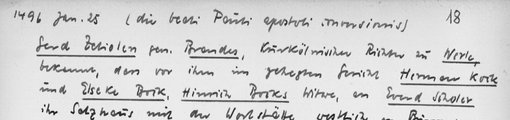 1496 Jan. 25 (die beati Pauli apostoli conversionis) 18
Gerd Scholen gen. Brandes, Kurkölnischer Richter zu Werl,
bekennt, dass vor ihm im gehegten Gericht Herman Kock
und Elseke Bock, Hinrich Bocks Witwe, an Everd Scholer
ihr Salzhaus mit der Werkstätte westlich